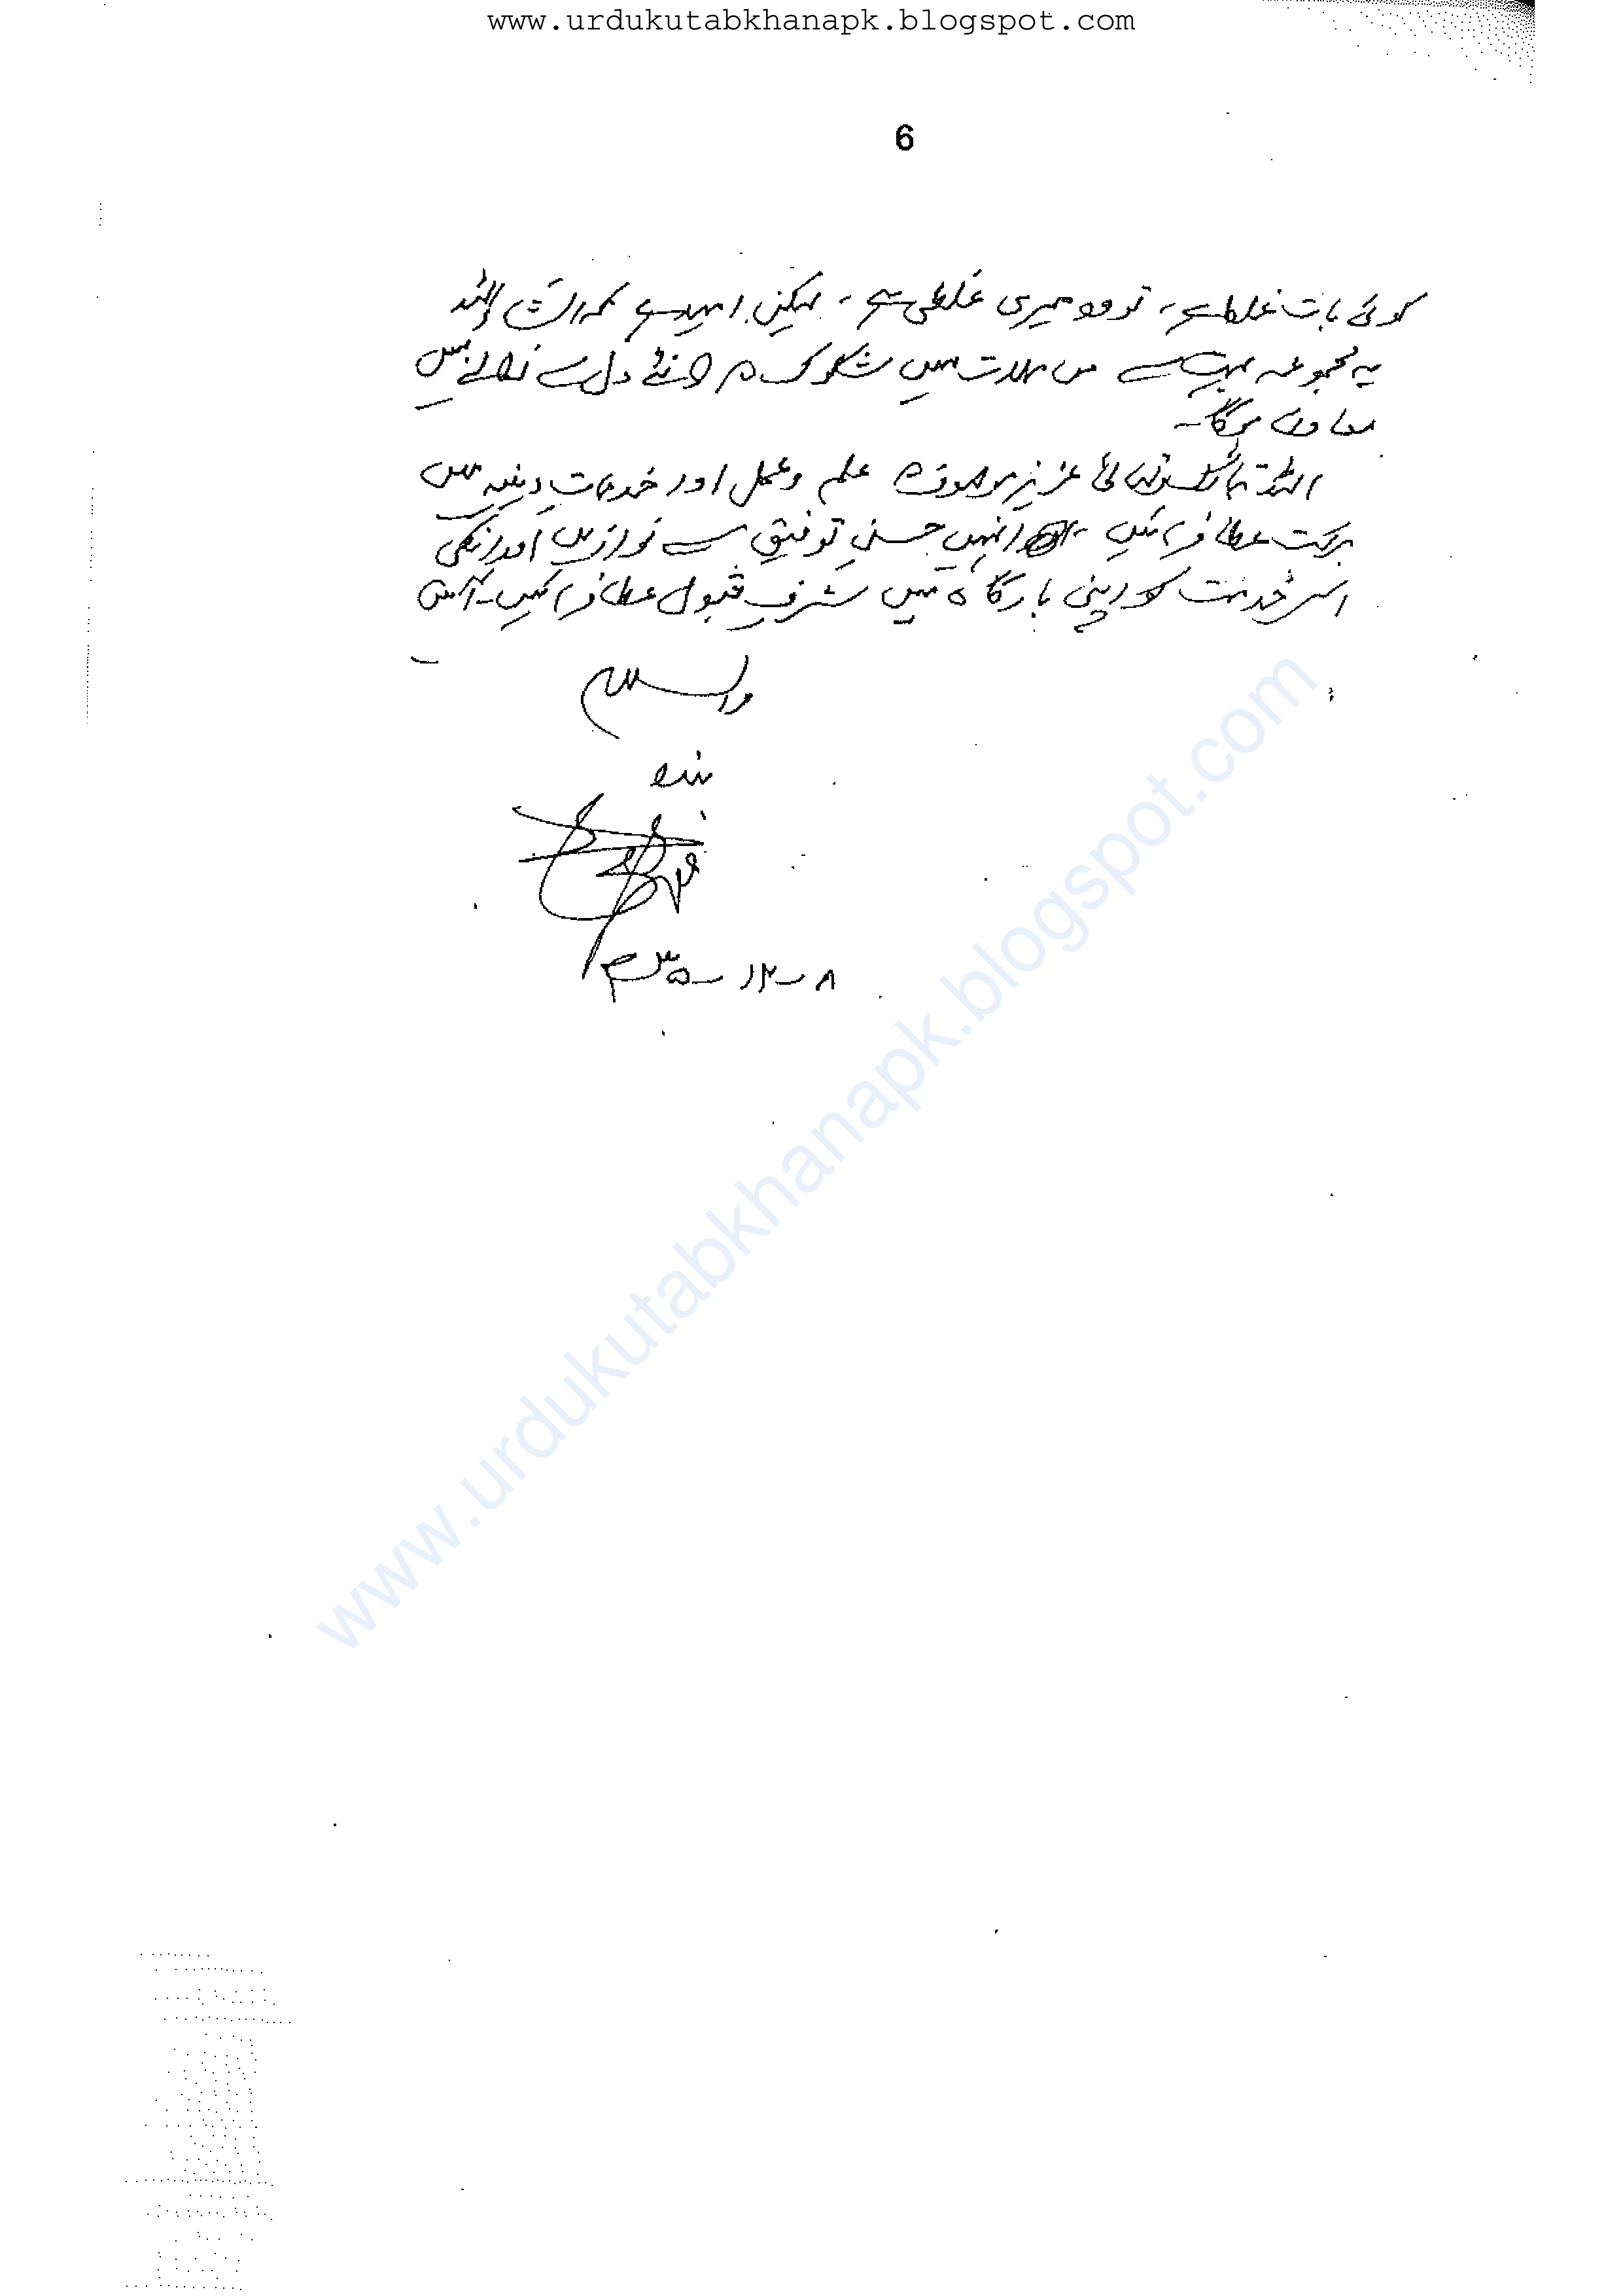 www.urdukutabkhanapk.blogspot.com
6
کوئی بات غلط ہے، تو وہ میری غلطی ہے، لیکن امید ہے کہ انشاء اللہ
یہ مجموعہ بہت سے معاملات میں شکوک دل سے نکالنے میں
معاون ہوگا۔
اللہ تبارک وتعالیٰ عزیز موصوف کے علم وعمل اور خدمات دینیہ میں
برکت عطا فرمائیں، انہیں حسنِ توفیق سے نوازیں اور انکی
اس خدمت کو اپنی بارگاہ میں شرفِ قبول عطا فرمائیں۔ آمین
والسلام
بندہ
www.urdukutabkhanapk.blogspot.com